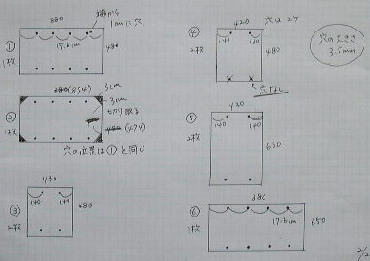 880
端から
1cmに穴
①
17.6cm
480
1枚
420 穴は2ケ
④
140 140
2枚
480
穴なし
穴の大きさ
3.5mm
(854)
3cm
3cm
②
切り取る
1枚
(474)
穴の位置は①と同じ
420
⑤
140 140
2枚
630
430
③
140 140
680
2枚
⑥
17.6cm
650
1枚
2/2